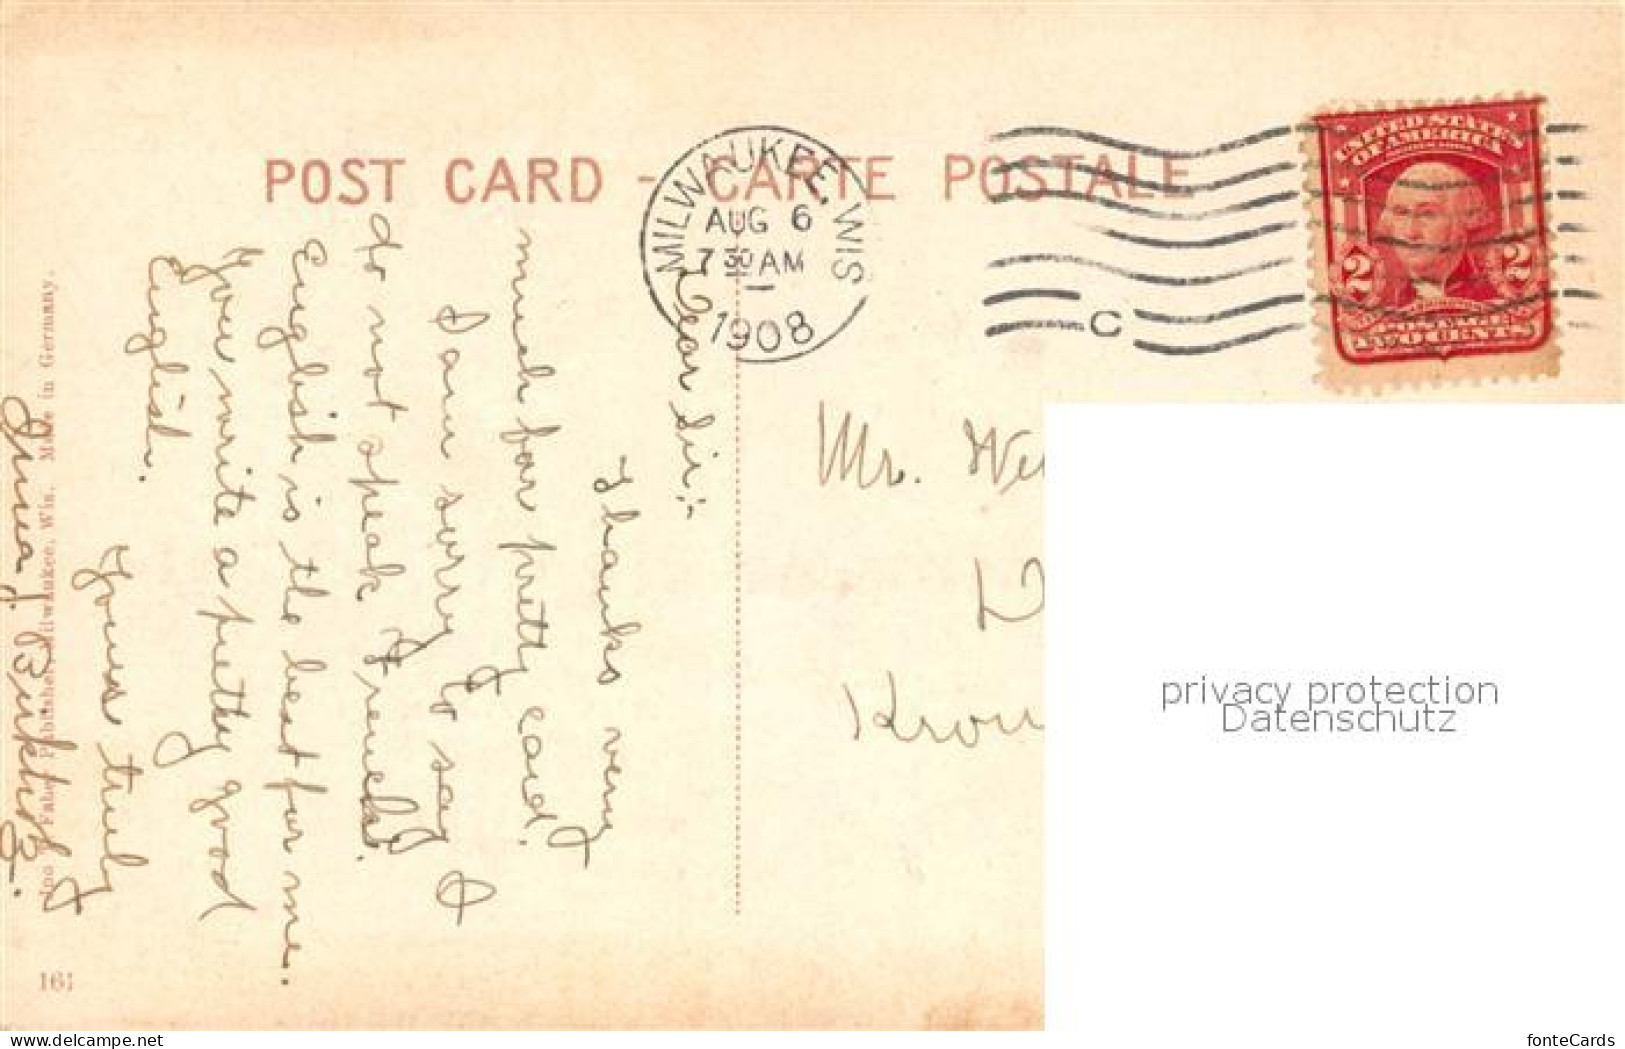 POST CARD - CARTE POSTALE
MILWAUKEE, WIS.
AUG 6
7 30 AM
1908
C
UNITED STATES
OF AMERICA
2 2
POSTAGE
TWO CENTS
Dear Sir:-
Thanks very
much for pretty card.
I am sorry to say I
do not speak French.
English is the best for me.
You write a pretty good
English.
Yours truly
J.
Mr. We
D
Kron
Publisher, Milwaukee, Wis. Made in Germany.
161
privacy protection
Datenschutz
www.delcampe.net
fonteCards